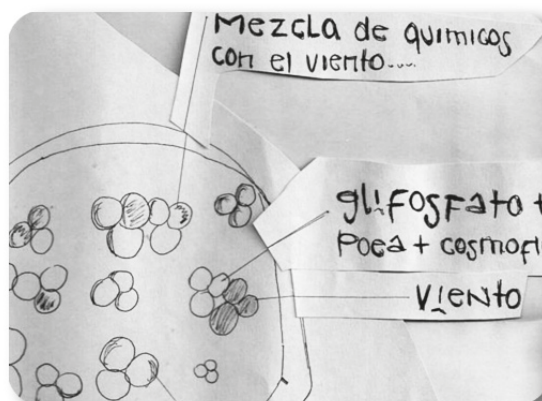 Mezcla de quimicos
con el viento....
glifosfato +
POEA + cosmofl
Viento